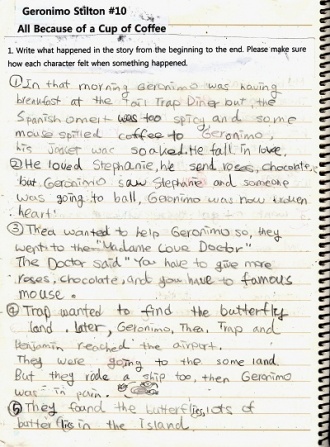 Geronimo Stilton #10
All Because of a Cup of Coffee
1. Write what happened in the story from the beginning to the end. Please make sure
how each character felt when something happened.
① In that morning Geronimo was having
breakfast at the Tail Trap Diner but, the
Spanish omelt was too spicy and some
mouse spilled coffee to Geronimo,
his jacket was soaked. He fall in love.
② He loved Stephanie, he send roses, chocolate,
but Geronimo saw Stephanie and someone
was going to ball, Geronimo was now broken
heart.
③ Thea wanted to help Geronimo so, they
went to the "Madame Love Doctor"
The Doctor said "You have to give more
roses, chocolate, and you have to famous
mouse.
④ Trap wanted to find the butterfly
land. later, Geronimo, Thea, Trap and
Benjamin reached the airport.
They were going to the some land.
But they rode a ship too, then Geronimo
was in pain.
⑤ They found the butterflies, lots of
butterflies in the island.